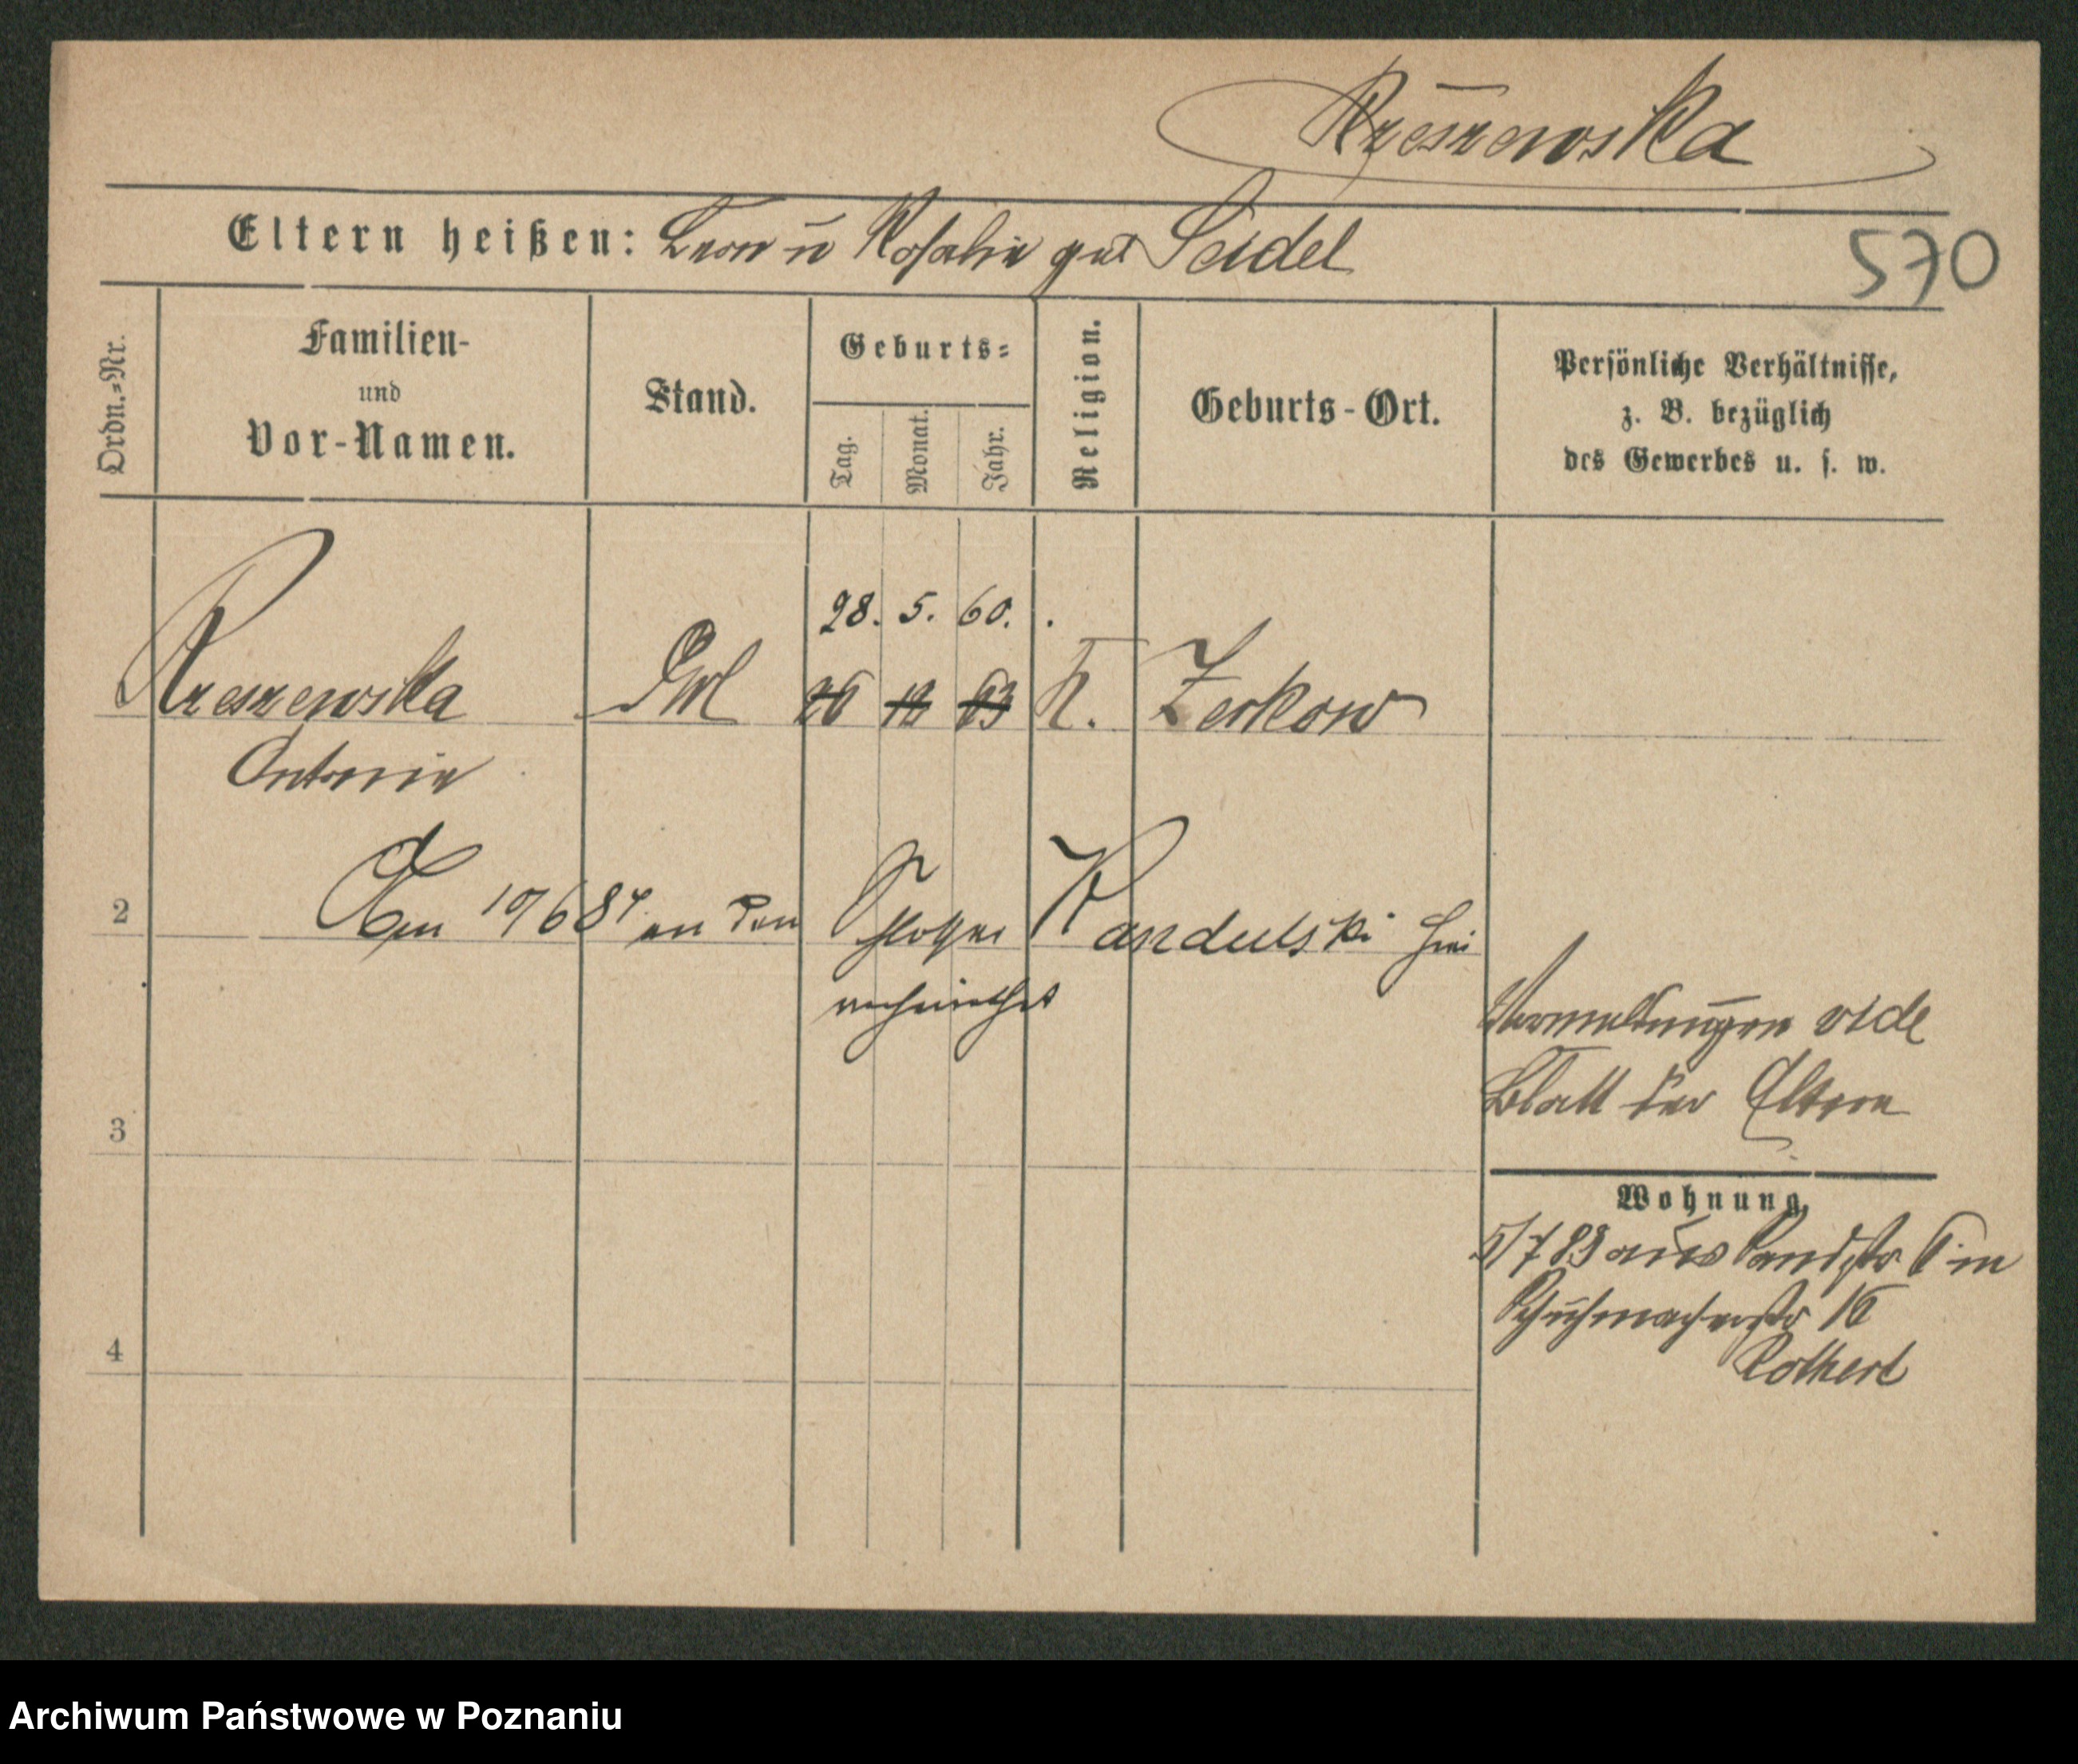 Rzeszewska
Eltern heißen: Leon u Rosalie geb Seidel
570
Ordn.-Nr.
Familien-
und
Vor-Namen.
Stand.
Geburts-
Tag.
Monat.
Jahr.
Religion.
Geburts-Ort.
Persönliche Verhältnisse,
z. B. bezüglich
des Gewerbes u. s. w.
28. 5. 60.
Rzeszewska
26 12 63 K. Zerkow
Antonie
2
Am 10/6 84 an den Kandulski hier
verheirathet
Anmeldungen vide
Blatt der Eltern
3
Wohnung
5/7 83 aus Sandstr 6 in
Schuhmacherstr 16
Rothert
4
Archiwum Państwowe w Poznaniu